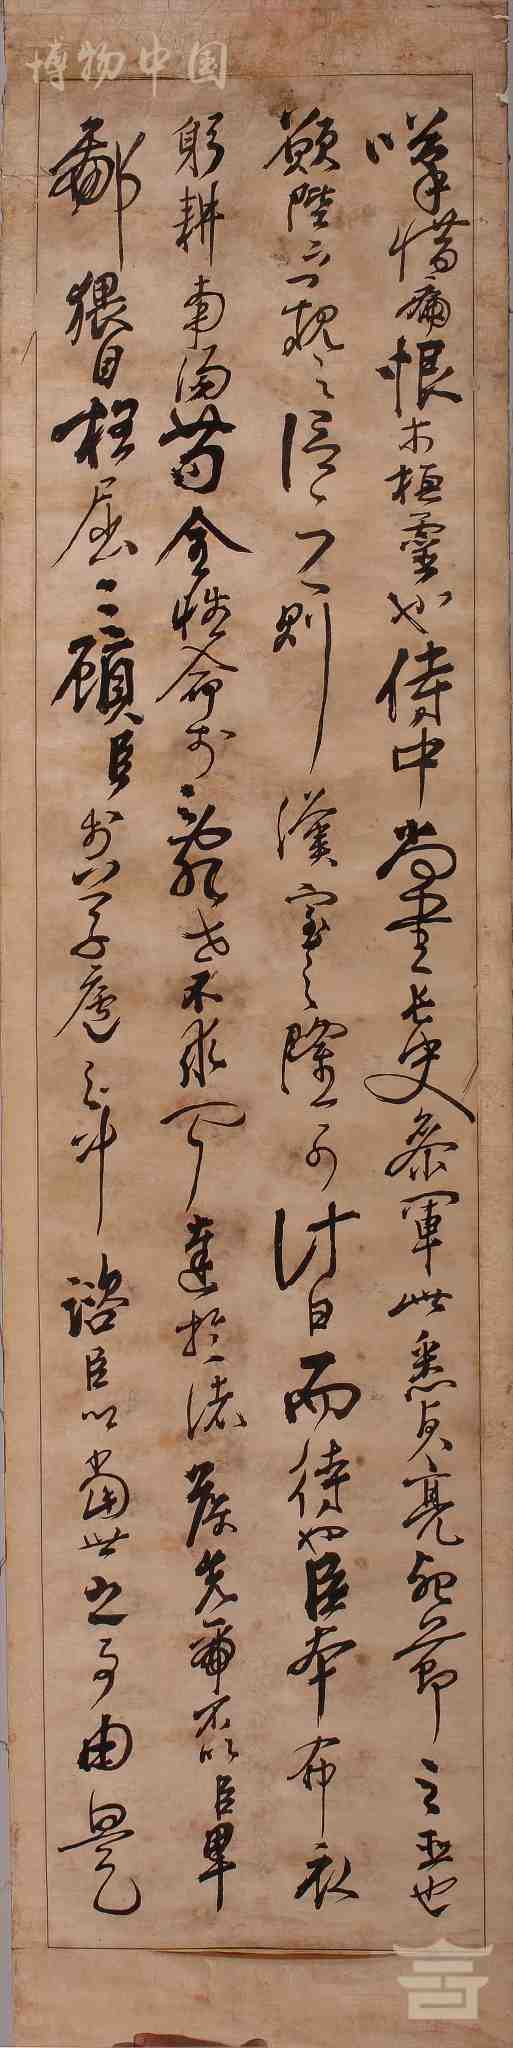 博物中国
嘆惜痛恨於桓靈也侍中尚書長史參軍此悉貞亮死節之臣也
願陛下親之信之則漢室之隆可計日而待也臣本布衣
躬耕南陽苟全性命於亂世不求聞達於諸侯先帝不以臣卑
鄙猥自枉屈三顧臣於草廬之中諮臣以當世之事由是